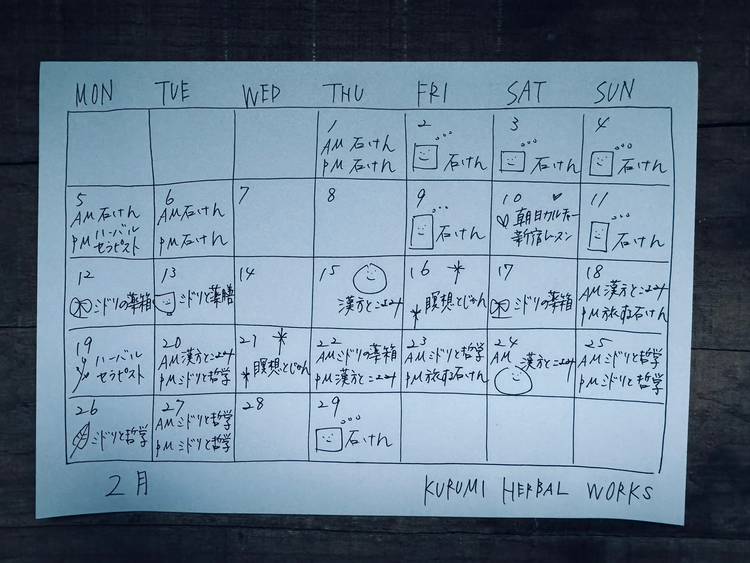 MON TUE WED THU FRI SAT SUN
1
AM 石けん
PM 石けん
2
石けん
3
石けん
4
石けん
5
AM 石けん
PM ハーバル
セラピスト
6
AM 石けん
PM 石けん
7
8
9
石けん
10
朝日カルチャー
新宿レースン
11
石けん
12
ミドリの薬箱
13
ミドリと薬膳
14
15
漢方とこよみ
16
瞑想とじゅん
17
ミドリの薬箱
18
AM 漢方とこよみ
PM 旅する石けん
19
ハーバル
セラピスト
20
AM 漢方とこよみ
PM ミドリと哲学
21
瞑想とじゅん
22
AM ミドリの薬箱
PM 漢方とこよみ
23
AM ミドリと哲学
PM 旅する石けん
24
AM 漢方とこよみ
25
AM ミドリと哲学
PM ミドリと哲学
26
ミドリと哲学
27
AM ミドリと哲学
PM ミドリと哲学
28
29
石けん
2月
KURUMI HERBAL WORKS